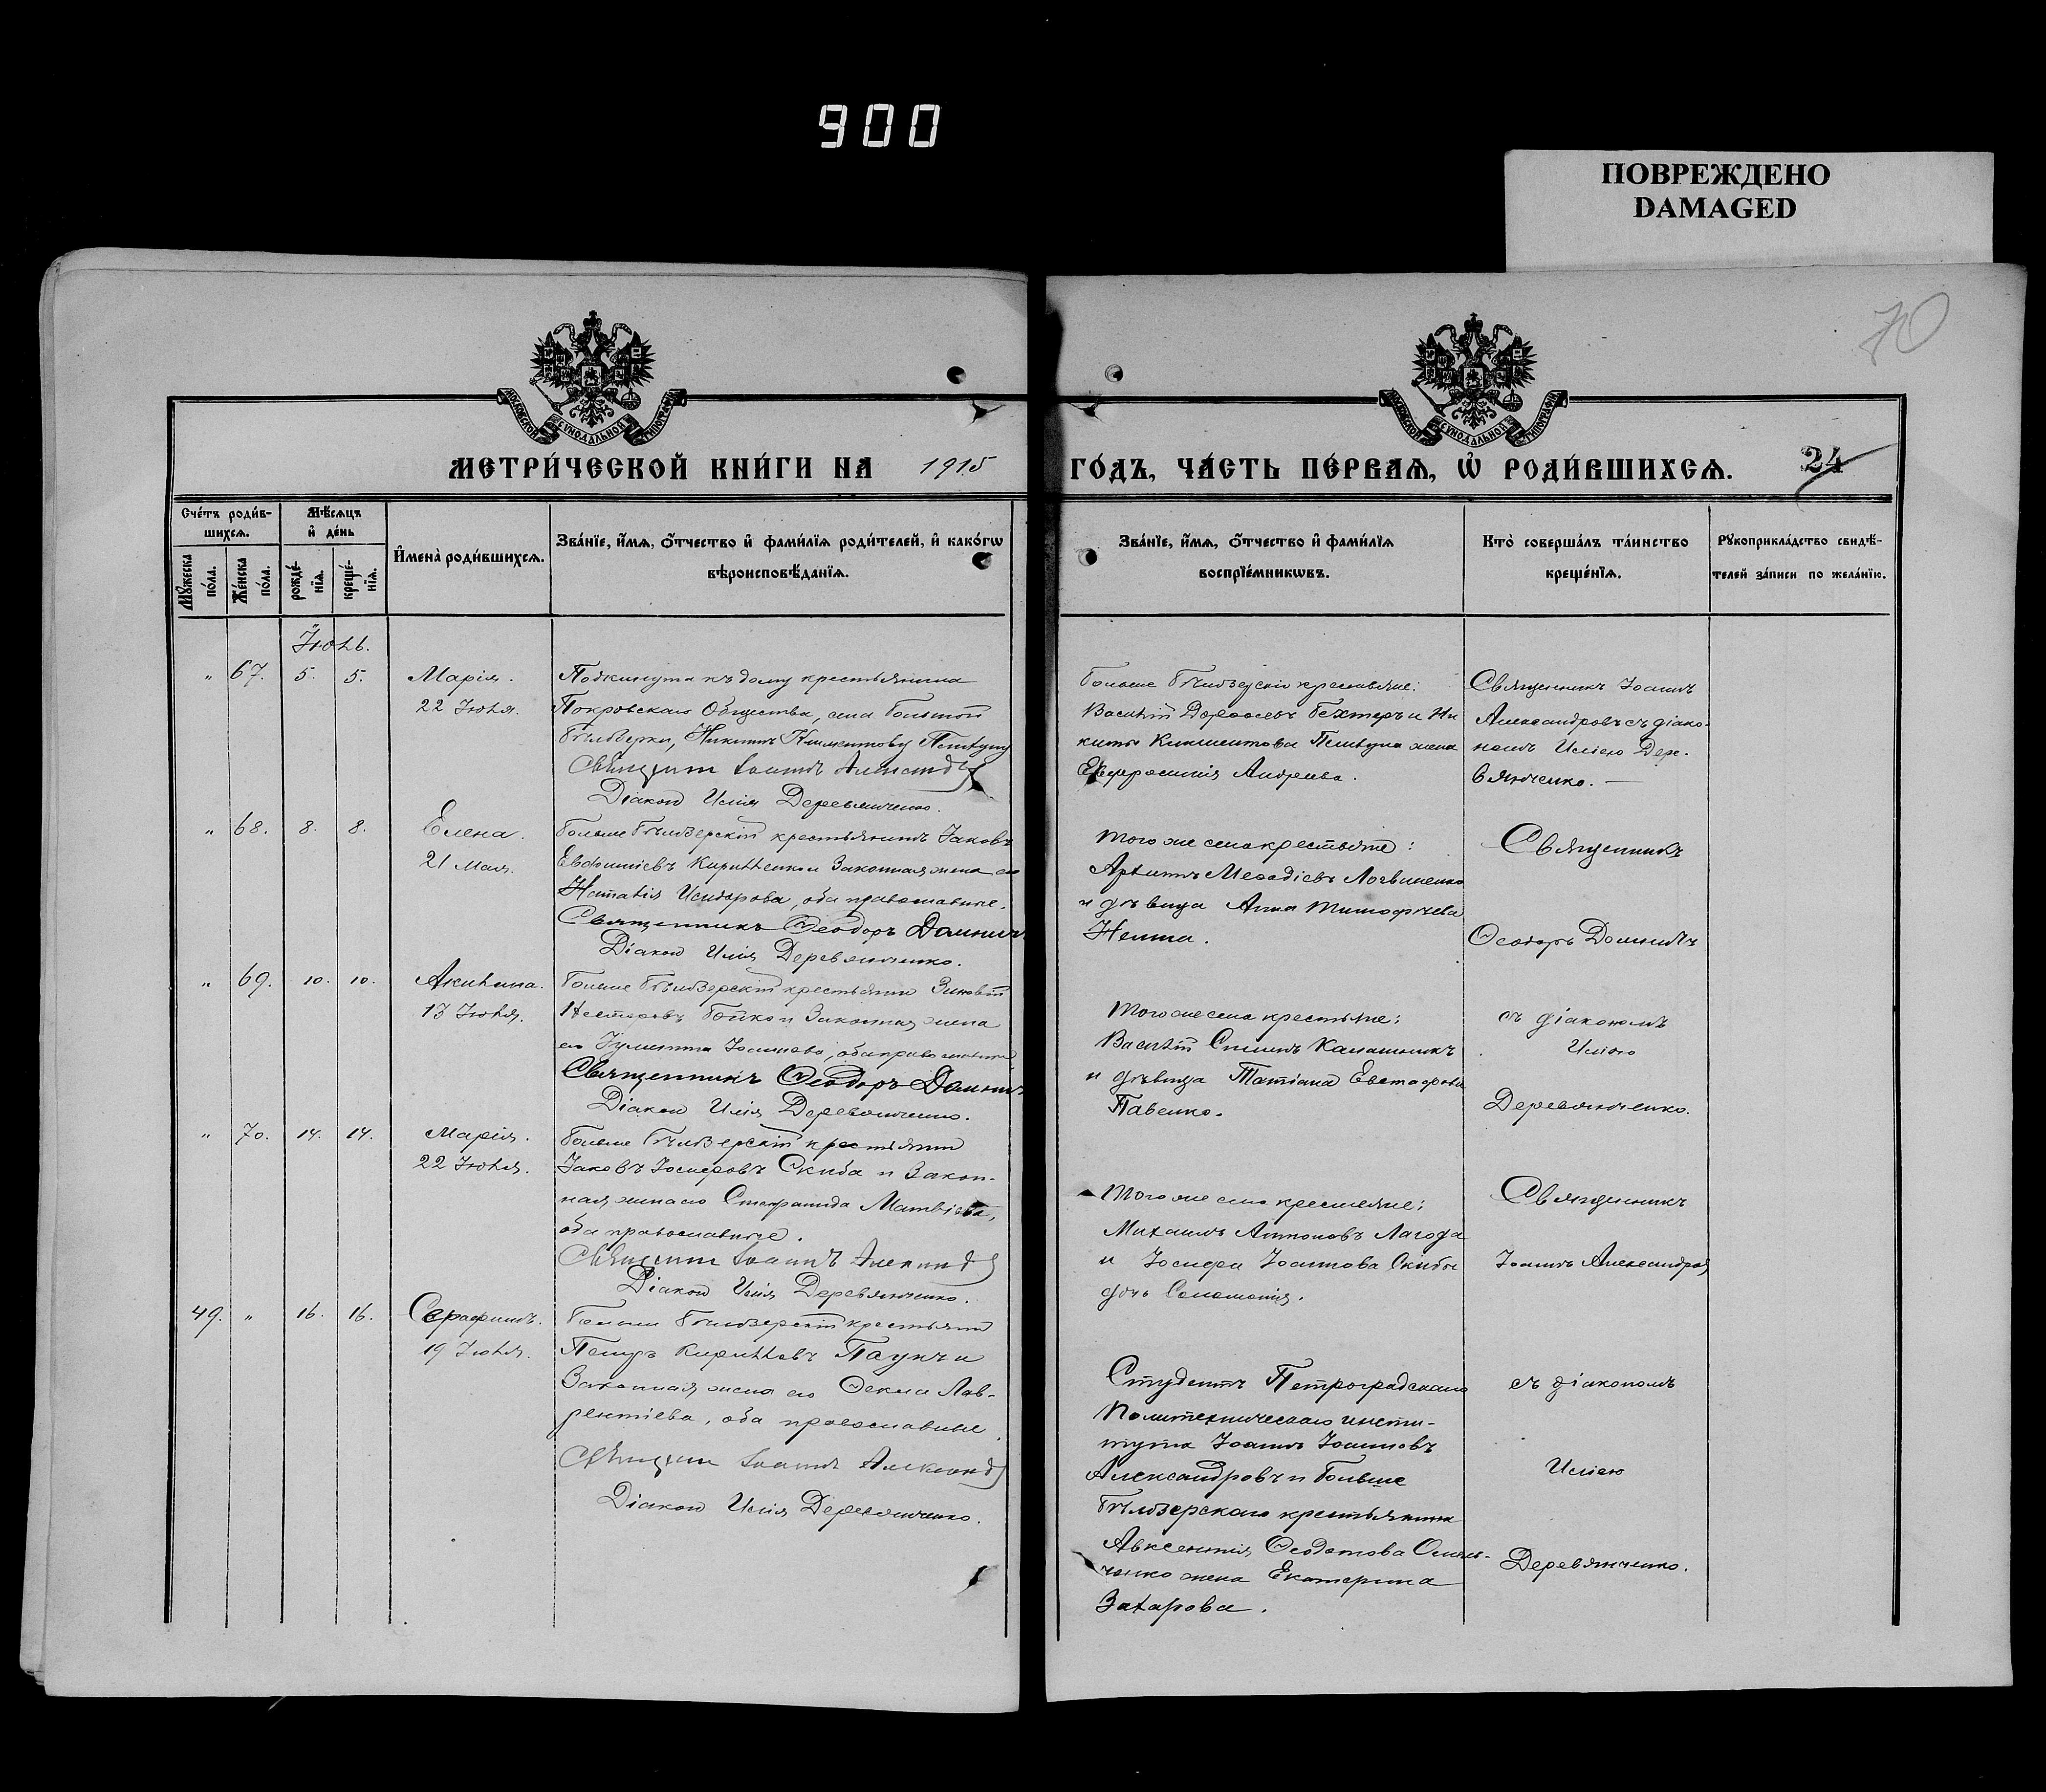 900
ПОВРЕЖДЕНО
DAMAGED
70
МОСКОВСКОЙ СѴНОДАЛЬНОЙ ТИПОГРАФІИ
МОСКОВСКОЙ СѴНОДАЛЬНОЙ ТИПОГРАФІИ
МЕТРИ́ЧЕСКОЙ КНИ́ГИ НА 1915 ГО́ДЪ, ЧА́СТЬ ПЕ́РВАѦ, Ѽ РОДИ́ВШИХСѦ. 24
Сче́тъ роди́в-
шихсѧ.
Мѣ́сѧцъ
и҆ де́нь
Мꙋ́жеска
по́ла.
Же́нска
по́ла.
рожде́-
нїѧ.
креще́-
нїѧ.
И҆мена̀ роди́вшихсѧ.
Зва́нїе, и҆́мѧ, о҆́тчество и҆ фами́лїѧ роди́телей, и҆ како́гѡ
вѣроисповѣ́данїѧ.
Зва́нїе, и҆́мѧ, о҆́тчество и҆ фами́лїѧ
воспрїе́мникѡвъ.
Кто̀ соверша́лъ та́инство
креще́нїѧ.
Рꙋкоприкла́дство свидѣ́-
телей за́писи по жела́нїю.
Іюль.
" 67. 5. 5. Марія.
22 Іюля.
Подкинута къ дому крестьянина
Покровскаго Общества, села Большой
Бѣлозерки, Никиты Климентову
Священникъ Іоаннъ Александровъ
Діаконъ Илія Деревянченко.
Больше Бѣлозерскіе крестьяне:
Василій Бехтеръ и Ни
киты Климентова жена
Евфросинія Андреева.
Священникъ Іоаннъ
Александровъ съ діако-
номъ Иліею Дере-
вянченко. —
" 68. 8. 8. Елена.
21 Мая.
Больше Бѣлозерскій крестьянинъ Іаковъ
Евфиміевъ Кириленко и законная жена его
Наталія Исидорова, оба православные.
Священникъ Ѳеодоръ Домничъ
Діаконъ Илія Деревянченко.
Того же села крестьяне:
Меѳодіевъ Логвиненко
и дѣвица Анна Тимофѣева
Священникъ
Ѳеодоръ Домничъ
" 69. 10. 10. Акилина.
13 Іюня.
Больше Бѣлозерскій крестьянинъ Зиновій
Нестеровъ Бойко и законная жена
его Іулитта Іоаннова, оба православные
Священникъ Ѳеодоръ Домничъ
Діаконъ Илія Деревянченко.
Того же села крестьяне:
Василій Калашникъ
и дѣвица Татіана Евстафіева
Павенко.
съ діакономъ
Иліею
Деревянченко.
" 70. 14. 14. Марія.
22 Іюля.
Больше Бѣлозерскій крестьянинъ
Іаковъ Іосифовъ Скиба и закон-
ная жена его Стефанида Матвіева,
оба православные.
Священникъ Іоаннъ Александровъ
Діаконъ Илія Деревянченко.
Того же села крестьяне:
Михаилъ Антоновъ Лагода
и Іосифа Іоаннова Скибы
дочь Соломонія.
Священникъ
Іоаннъ Александровъ
49. " 16. 16. Серафимъ.
19 Іюля.
Больше Бѣлозерскій крестьянинъ
Петръ Кирилловъ Паукъ и
законная жена его Ѳекла Лав-
рентіева, оба православные.
Священникъ Іоаннъ Александровъ
Діаконъ Илія Деревянченко.
Студентъ Петроградскаго
Политехническаго инсти-
тута Іоаннъ Іоанновъ
Александровъ и Больше
Бѣлозерскаго крестьянина
Авксентія Ѳеодотова Омель-
ченко жена Екатерина
Захарова.
съ діакономъ
Иліею
Деревянченко.